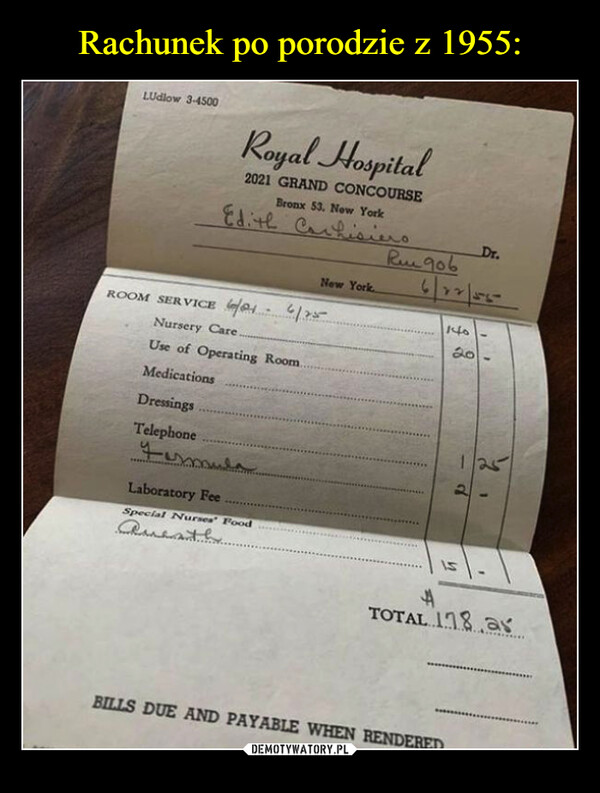 Rachunek po porodzie z 1955:
LUdlow 3-4500
Royal Hospital
2021 GRAND CONCOURSE
Bronx 53, New York
Edith
Dr.
Rm 906
New York 6/22/55
ROOM SERVICE 6/21 - 6/25 140 -
Nursery Care 20 -
Use of Operating Room
Medications
Dressings
Telephone 1 25
Formula 2 -
Laboratory Fee
Special Nurses' Food
Anesth 15 -
TOTAL $178.25
BILLS DUE AND PAYABLE WHEN RENDERED
DEMOTYWATORY.PL